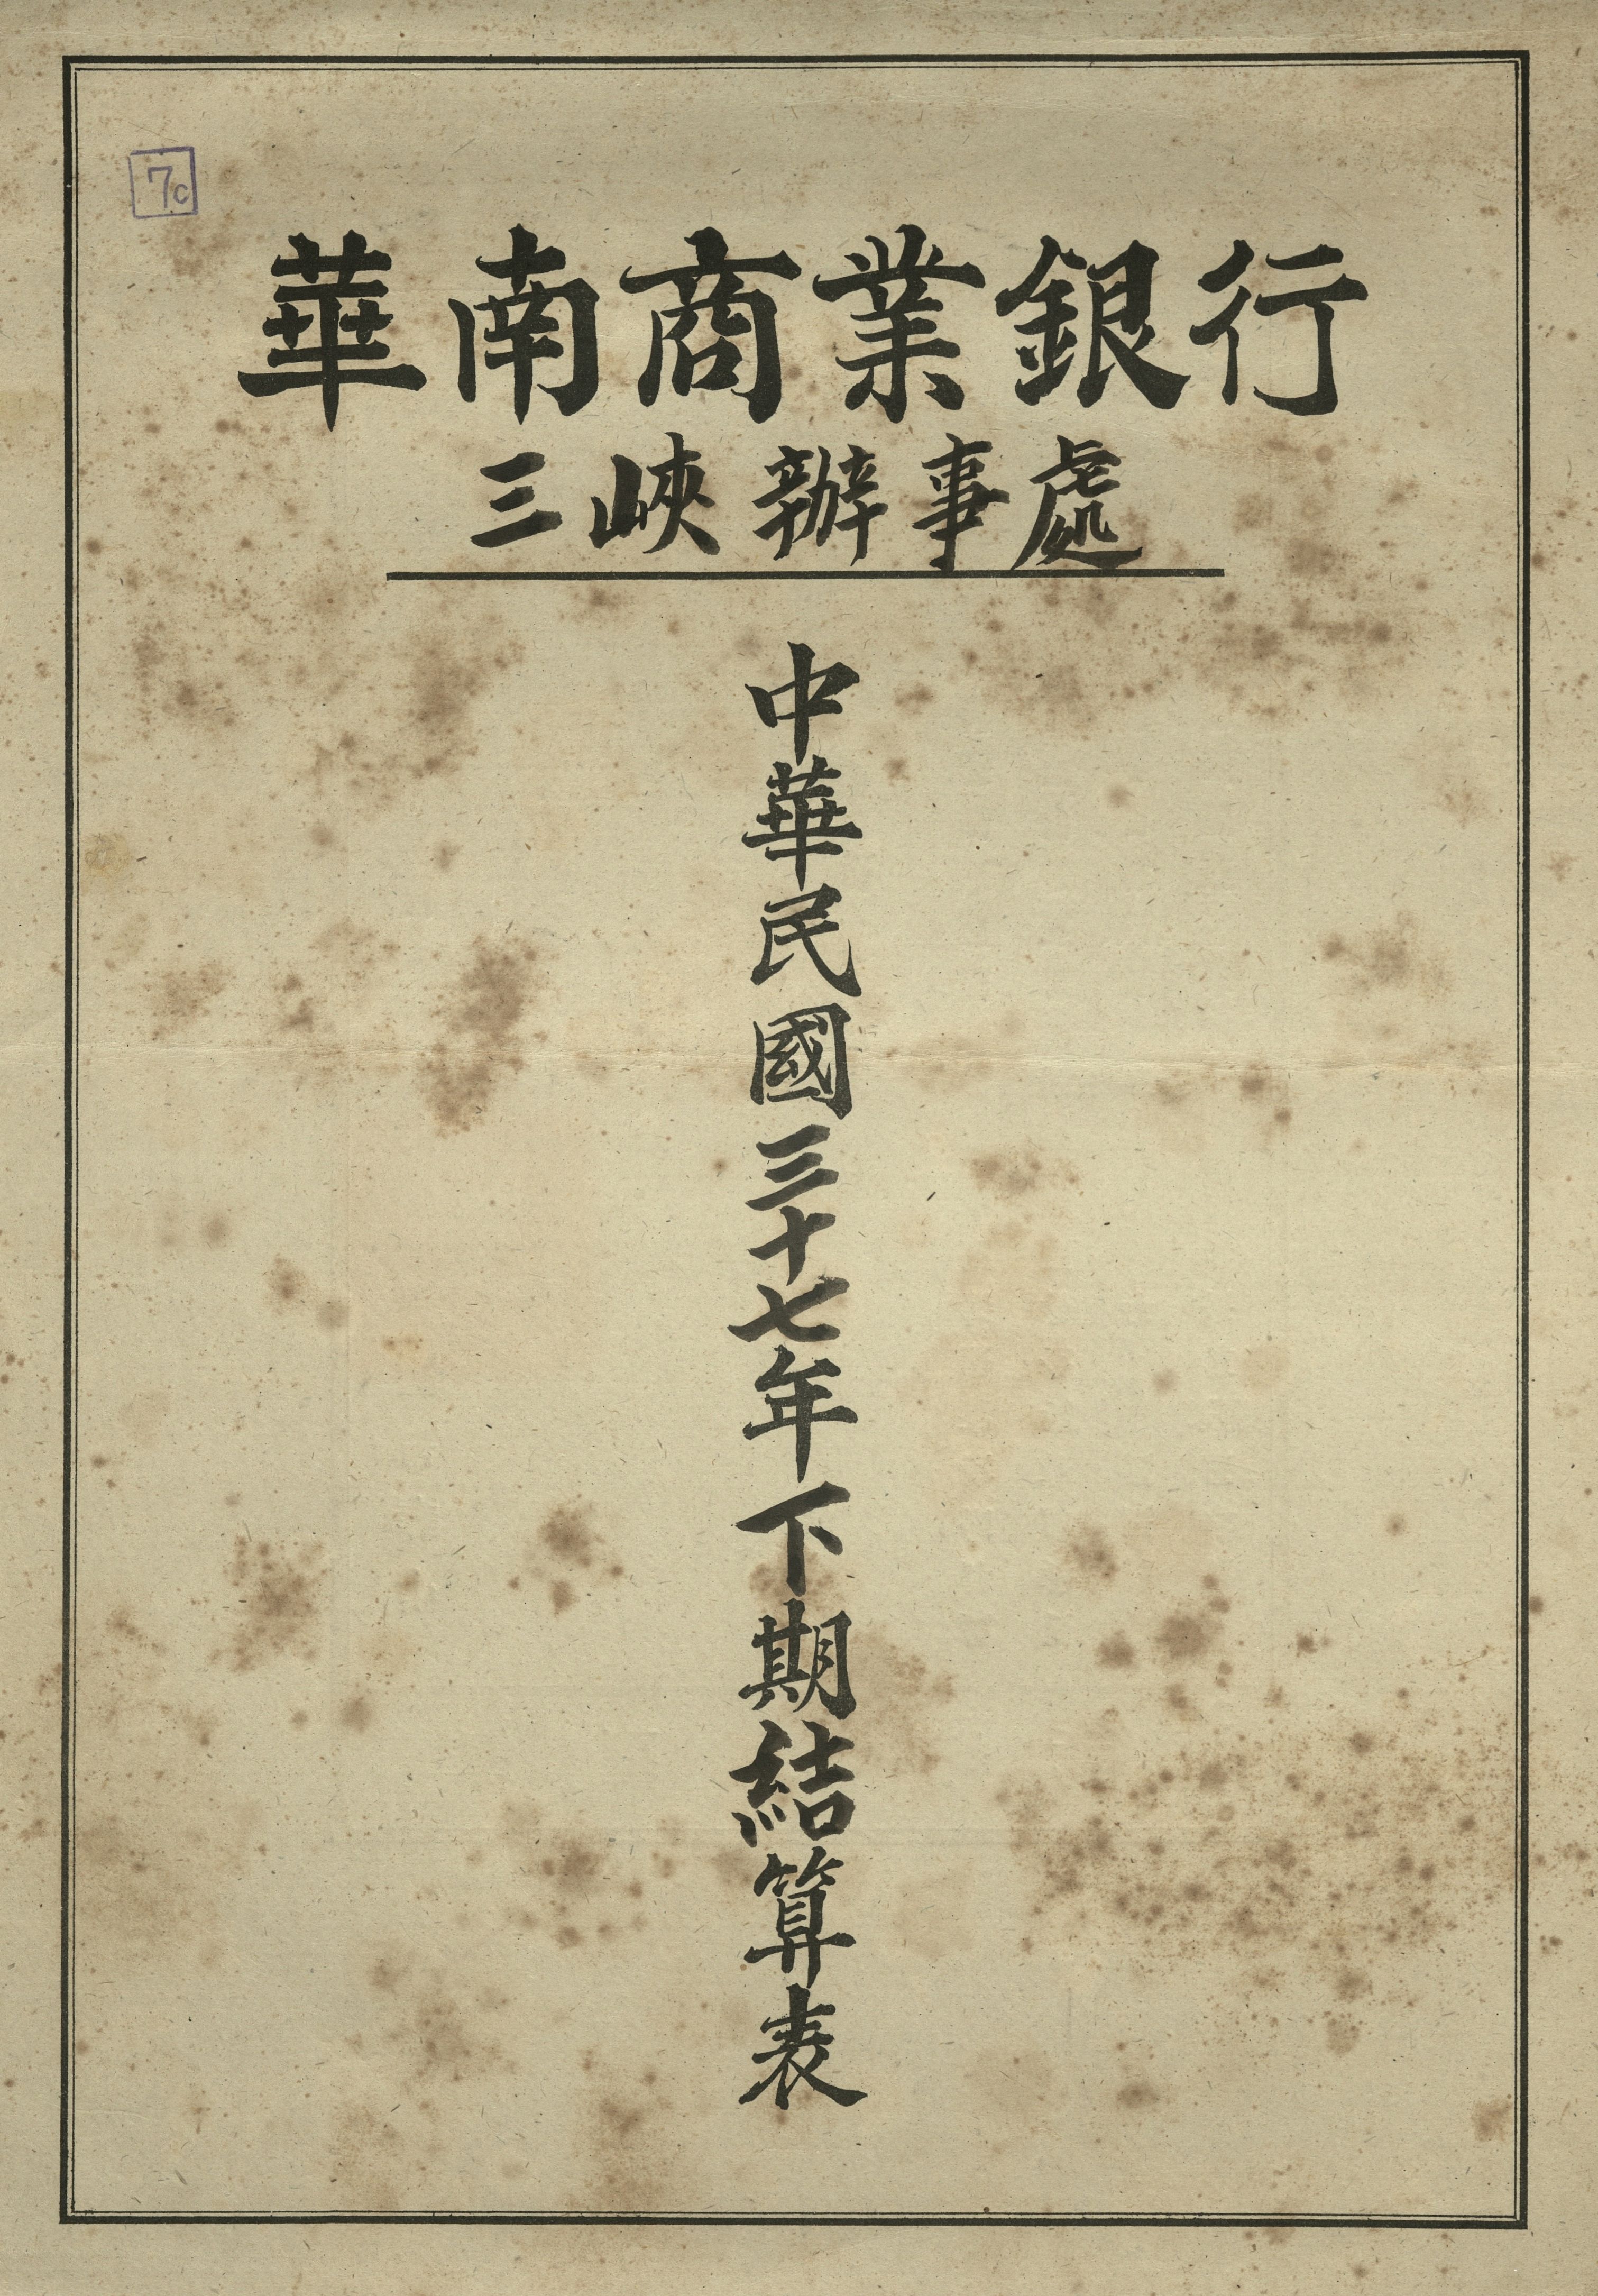 7c
華南商業銀行
三峽辦事處
中華民國三十七年下期結算表